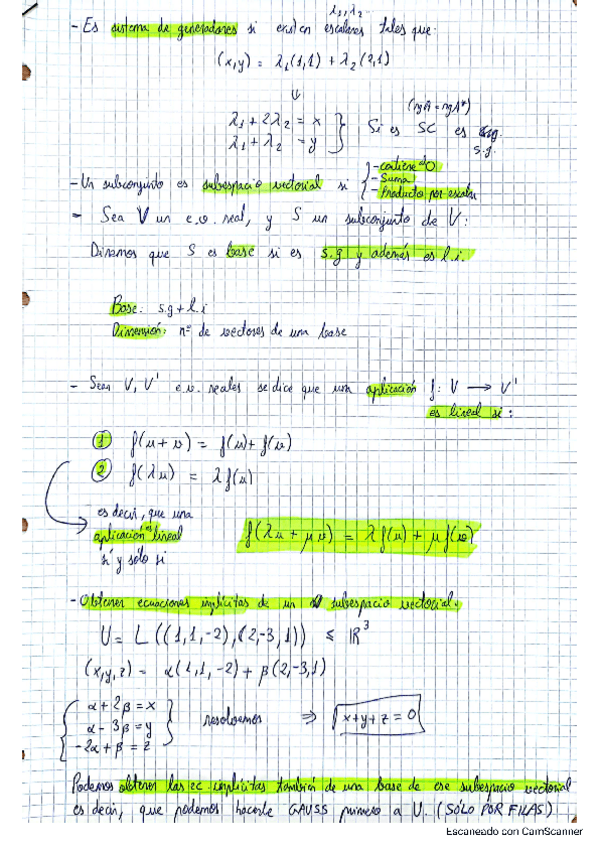 λ₁, λ₂..
- Es sistema de generadores si existen escalares tales que:
(x,y) = λ₁(1,1) + λ₂(2,1)
⇓
(rgA = rgA*)
λ₁ + 2λ₂ = x
λ₁ + λ₂ = y } Si es SC es
s.g.
- contiene al 0
- Un subconjunto es subespacio vectorial si { - Suma
- Producto por escalar
- Sea V un e.v. real, y S un subconjunto de V:
Diremos que S es base si es s.g y además es l.i.
Base: s.g + l.i
Dimensión: nº de vectores de una base
- Sean V, V' e.v. reales se dice que una aplicación f: V → V'
es lineal si:
① f(u+v) = f(u)+f(v)
② f(λu) = λf(u)
es decir, que una
aplicación es lineal f(λu + μv) = λf(u) + μf(v)
si y sólo si
- Obtener ecuaciones implícitas de un subespacio vectorial.
U = L((1,1,-2),(2,-3,1)) ≤ ℝ³
(x,y,z) = α(1,1,-2) + β(2,-3,1)
α + 2β = x
α - 3β = y resolvemos ⇒ x+y+z = 0
-2α + β = z
Podemos obtener las ec. implícitas también de una base de ese subespacio vectorial
es decir, que podemos hacerle GAUSS primero a U. (SÓLO POR FILAS)
Escaneado con CamScanner